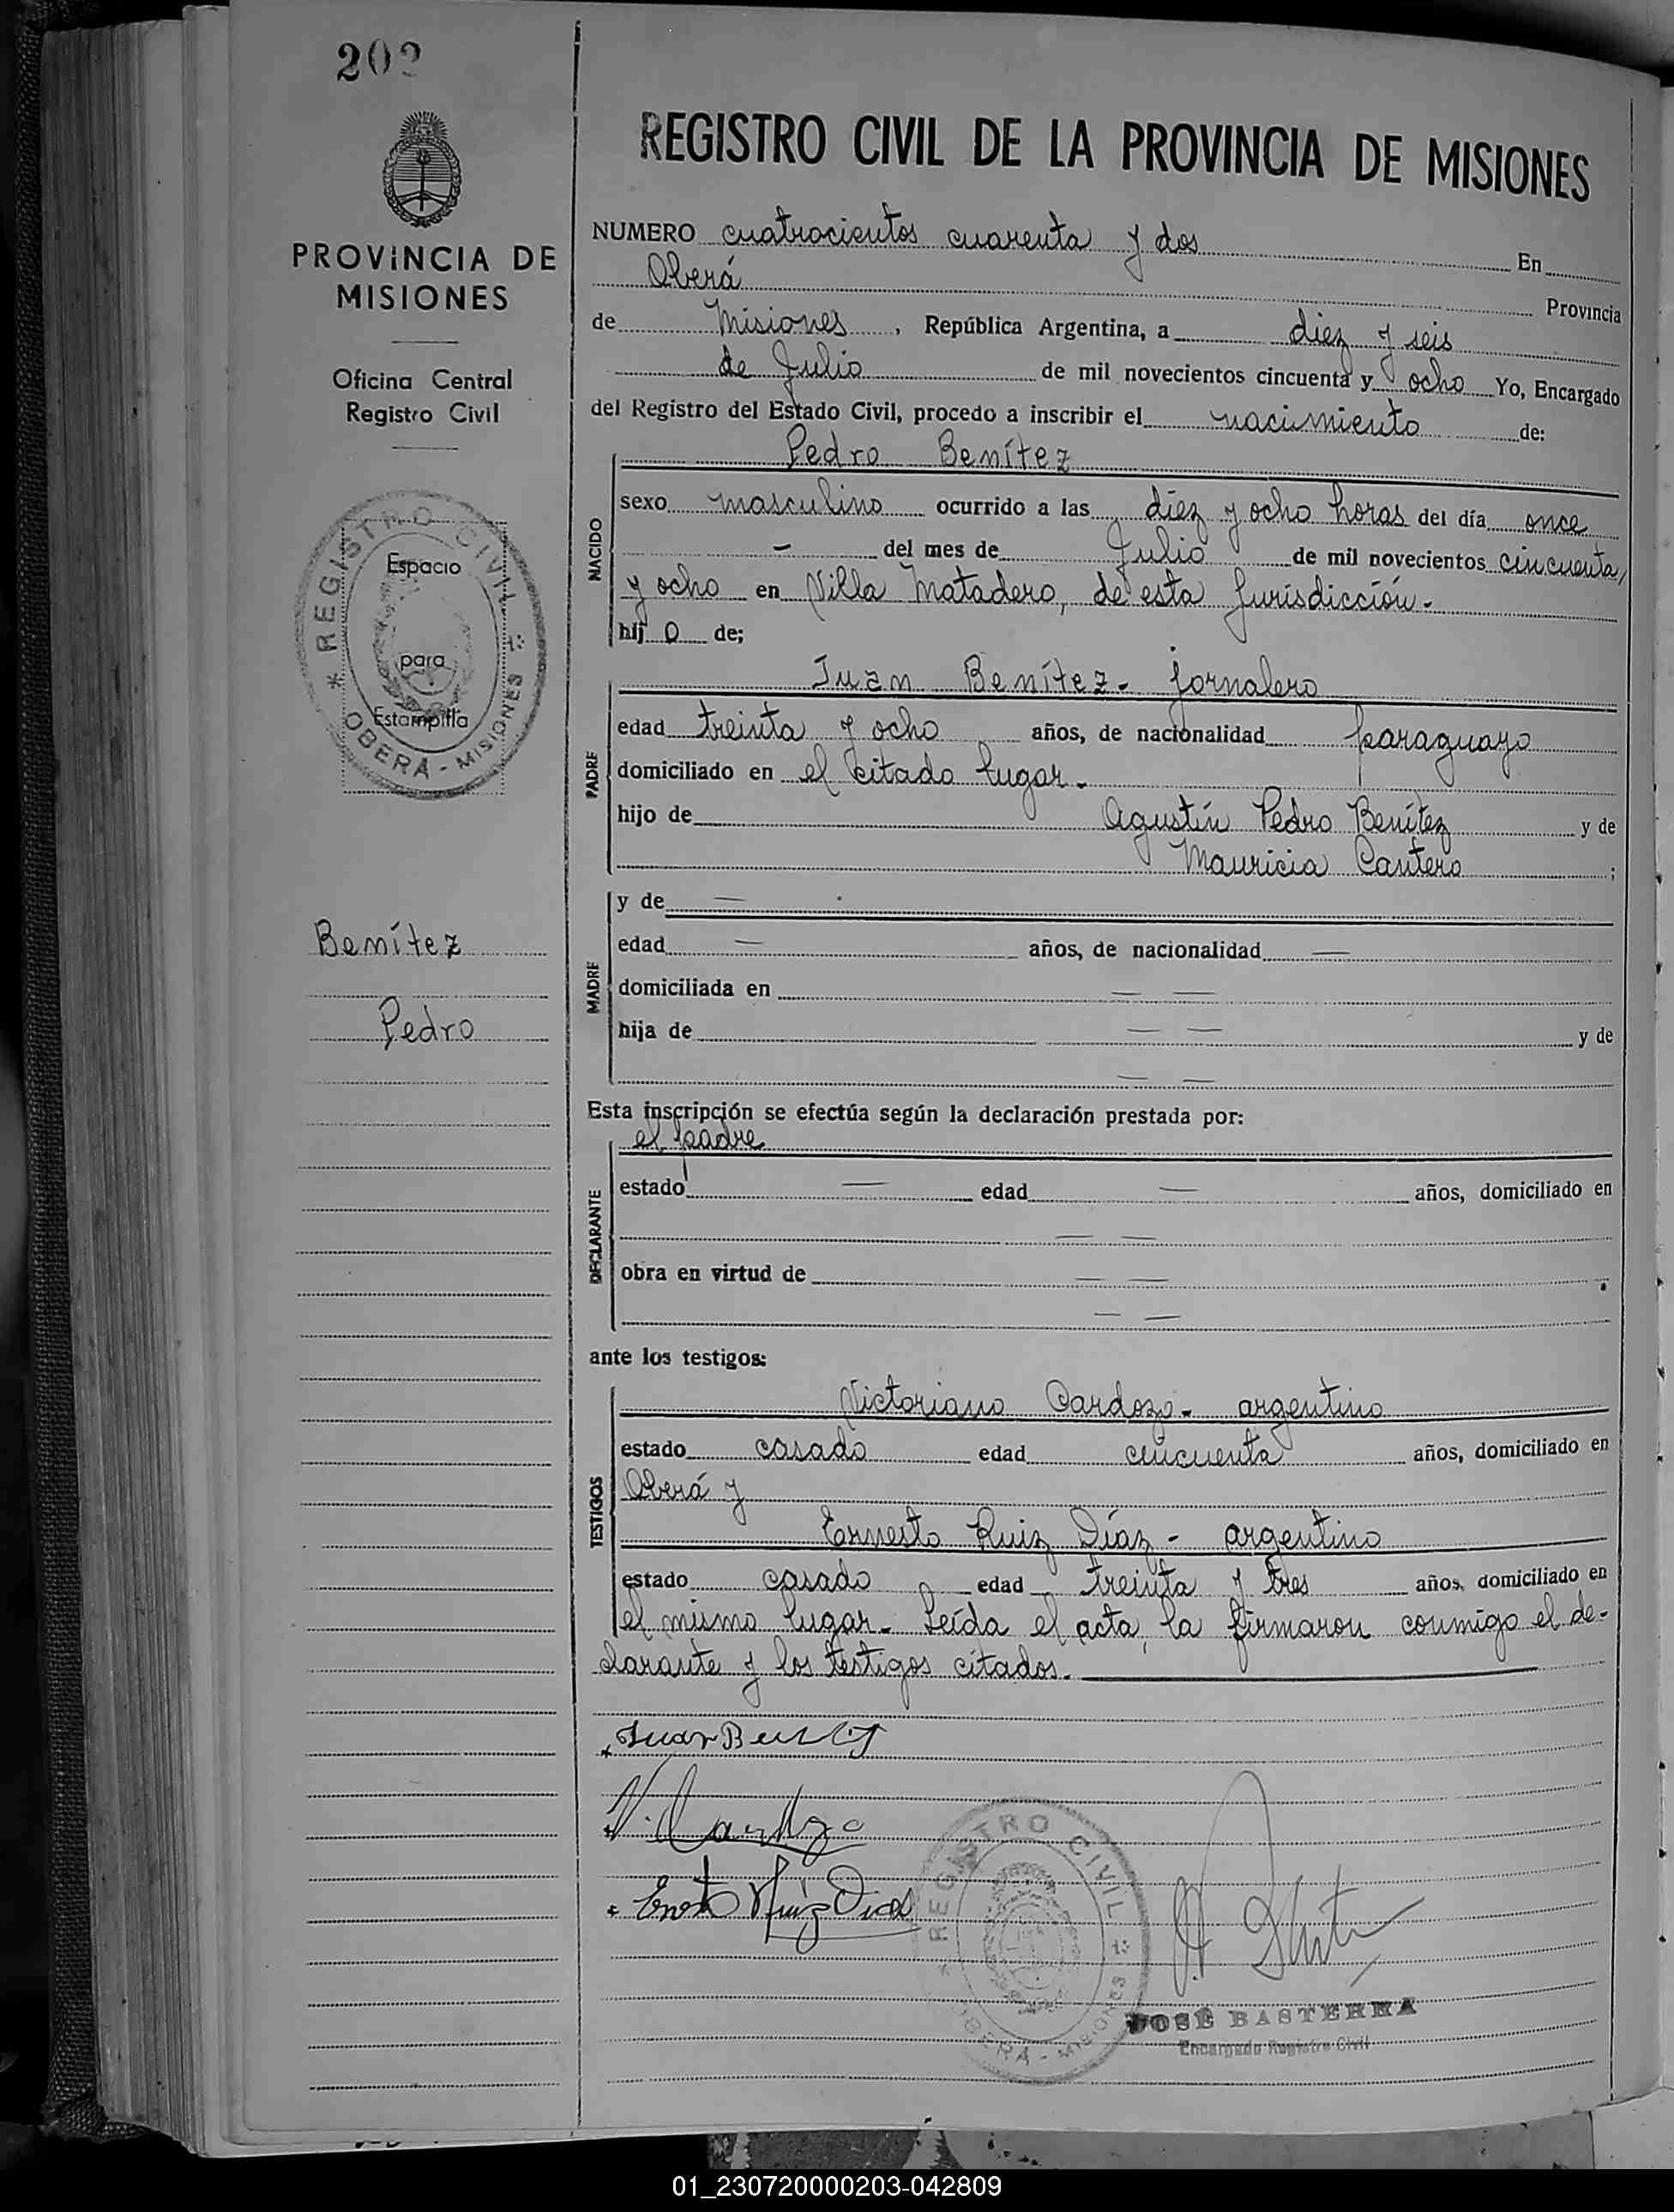 202
PROVINCIA DE
MISIONES
Oficina Central
Registro Civil
* REGISTRO CIVIL *
OBERÁ - MISIONES
Espacio
para
Estampilla
Benítez
Pedro
REGISTRO CIVIL DE LA PROVINCIA DE MISIONES
NUMERO cuatrocientos cuarenta y dos En
Oberá Provincia
de Misiones, República Argentina, a diez y seis
de Julio de mil novecientos cincuenta y ocho Yo, Encargado
del Registro del Estado Civil, procedo a inscribir el nacimiento de:
Pedro Benítez
NACIDO
sexo masculino ocurrido a las diez y ocho horas del día once
- del mes de Julio de mil novecientos cincuenta
y ocho en Villa Matadero, de esta Jurisdicción.-
hij o de;
PADRE
Juan Benítez.- jornalero
edad treinta y ocho años, de nacionalidad paraguayo
domiciliado en el citado lugar.-
hijo de Agustín Pedro Benítez y de
Mauricia Cantero ;
MADRE
y de —
edad — años, de nacionalidad —
domiciliada en — —
hija de — — y de
— —
Esta inscripción se efectúa según la declaración prestada por:
el padre
DECLARANTE
estado — edad — años, domiciliado en
— —
obra en virtud de — — .
— —
ante los testigos:
TESTIGOS
Victoriano Cardozo.- argentino
estado casado edad cincuenta años, domiciliado en
Oberá y
Ernesto Ruiz Díaz - argentino
estado casado edad treinta y tres años, domiciliado en
el mismo lugar.- Leída el acta, la firmaron conmigo el de-
clarante y los testigos citados.
Juan Benítez
V. Cardozo
Ernesto Ruiz Diaz
REGISTRO CIVIL
OBERÁ - MISIONES
JOSÉ BASTERRA
Encargado Registro Civil
01_230720000203-042809